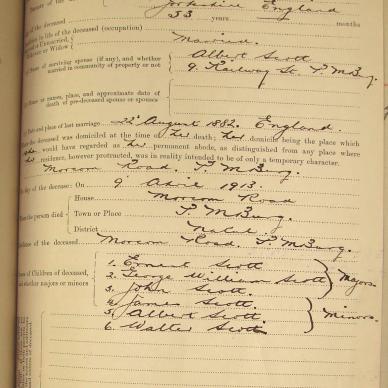 Yorkshire England
53 years months
of the deceased
in life of the deceased (occupation)
or Unmarried,
Widower or Widow
Married.
Name of surviving spouse (if any), and whether
married in community of property or not
Albert Scott
9. Railway St. P.M.Burg.
name, place, and approximate date of
death of pre-deceased spouse or spouses
and place of last marriage. 22nd August 1882. England.
deceased was domiciled at the time of her death; her domicile being the place which
she would have regarded as her permanent abode, as distinguished from any place where
her residence, however protracted, was in reality intended to be only a temporary character.
Morcom Road. P.M.Burg.
day of the decease: On 9. April 1913.
House Morcom Road
the person died Town or Place P.M.Burg.
District Natal.
of the deceased Morcom Road. P.M.Burg.
of Children of deceased,
whether majors or minors
1. Ernest Scott
2. George William Scott
3. John Scott.
Majors.
4. James Scott.
5. Albert Scott.
6. Walter Scott
Minors.